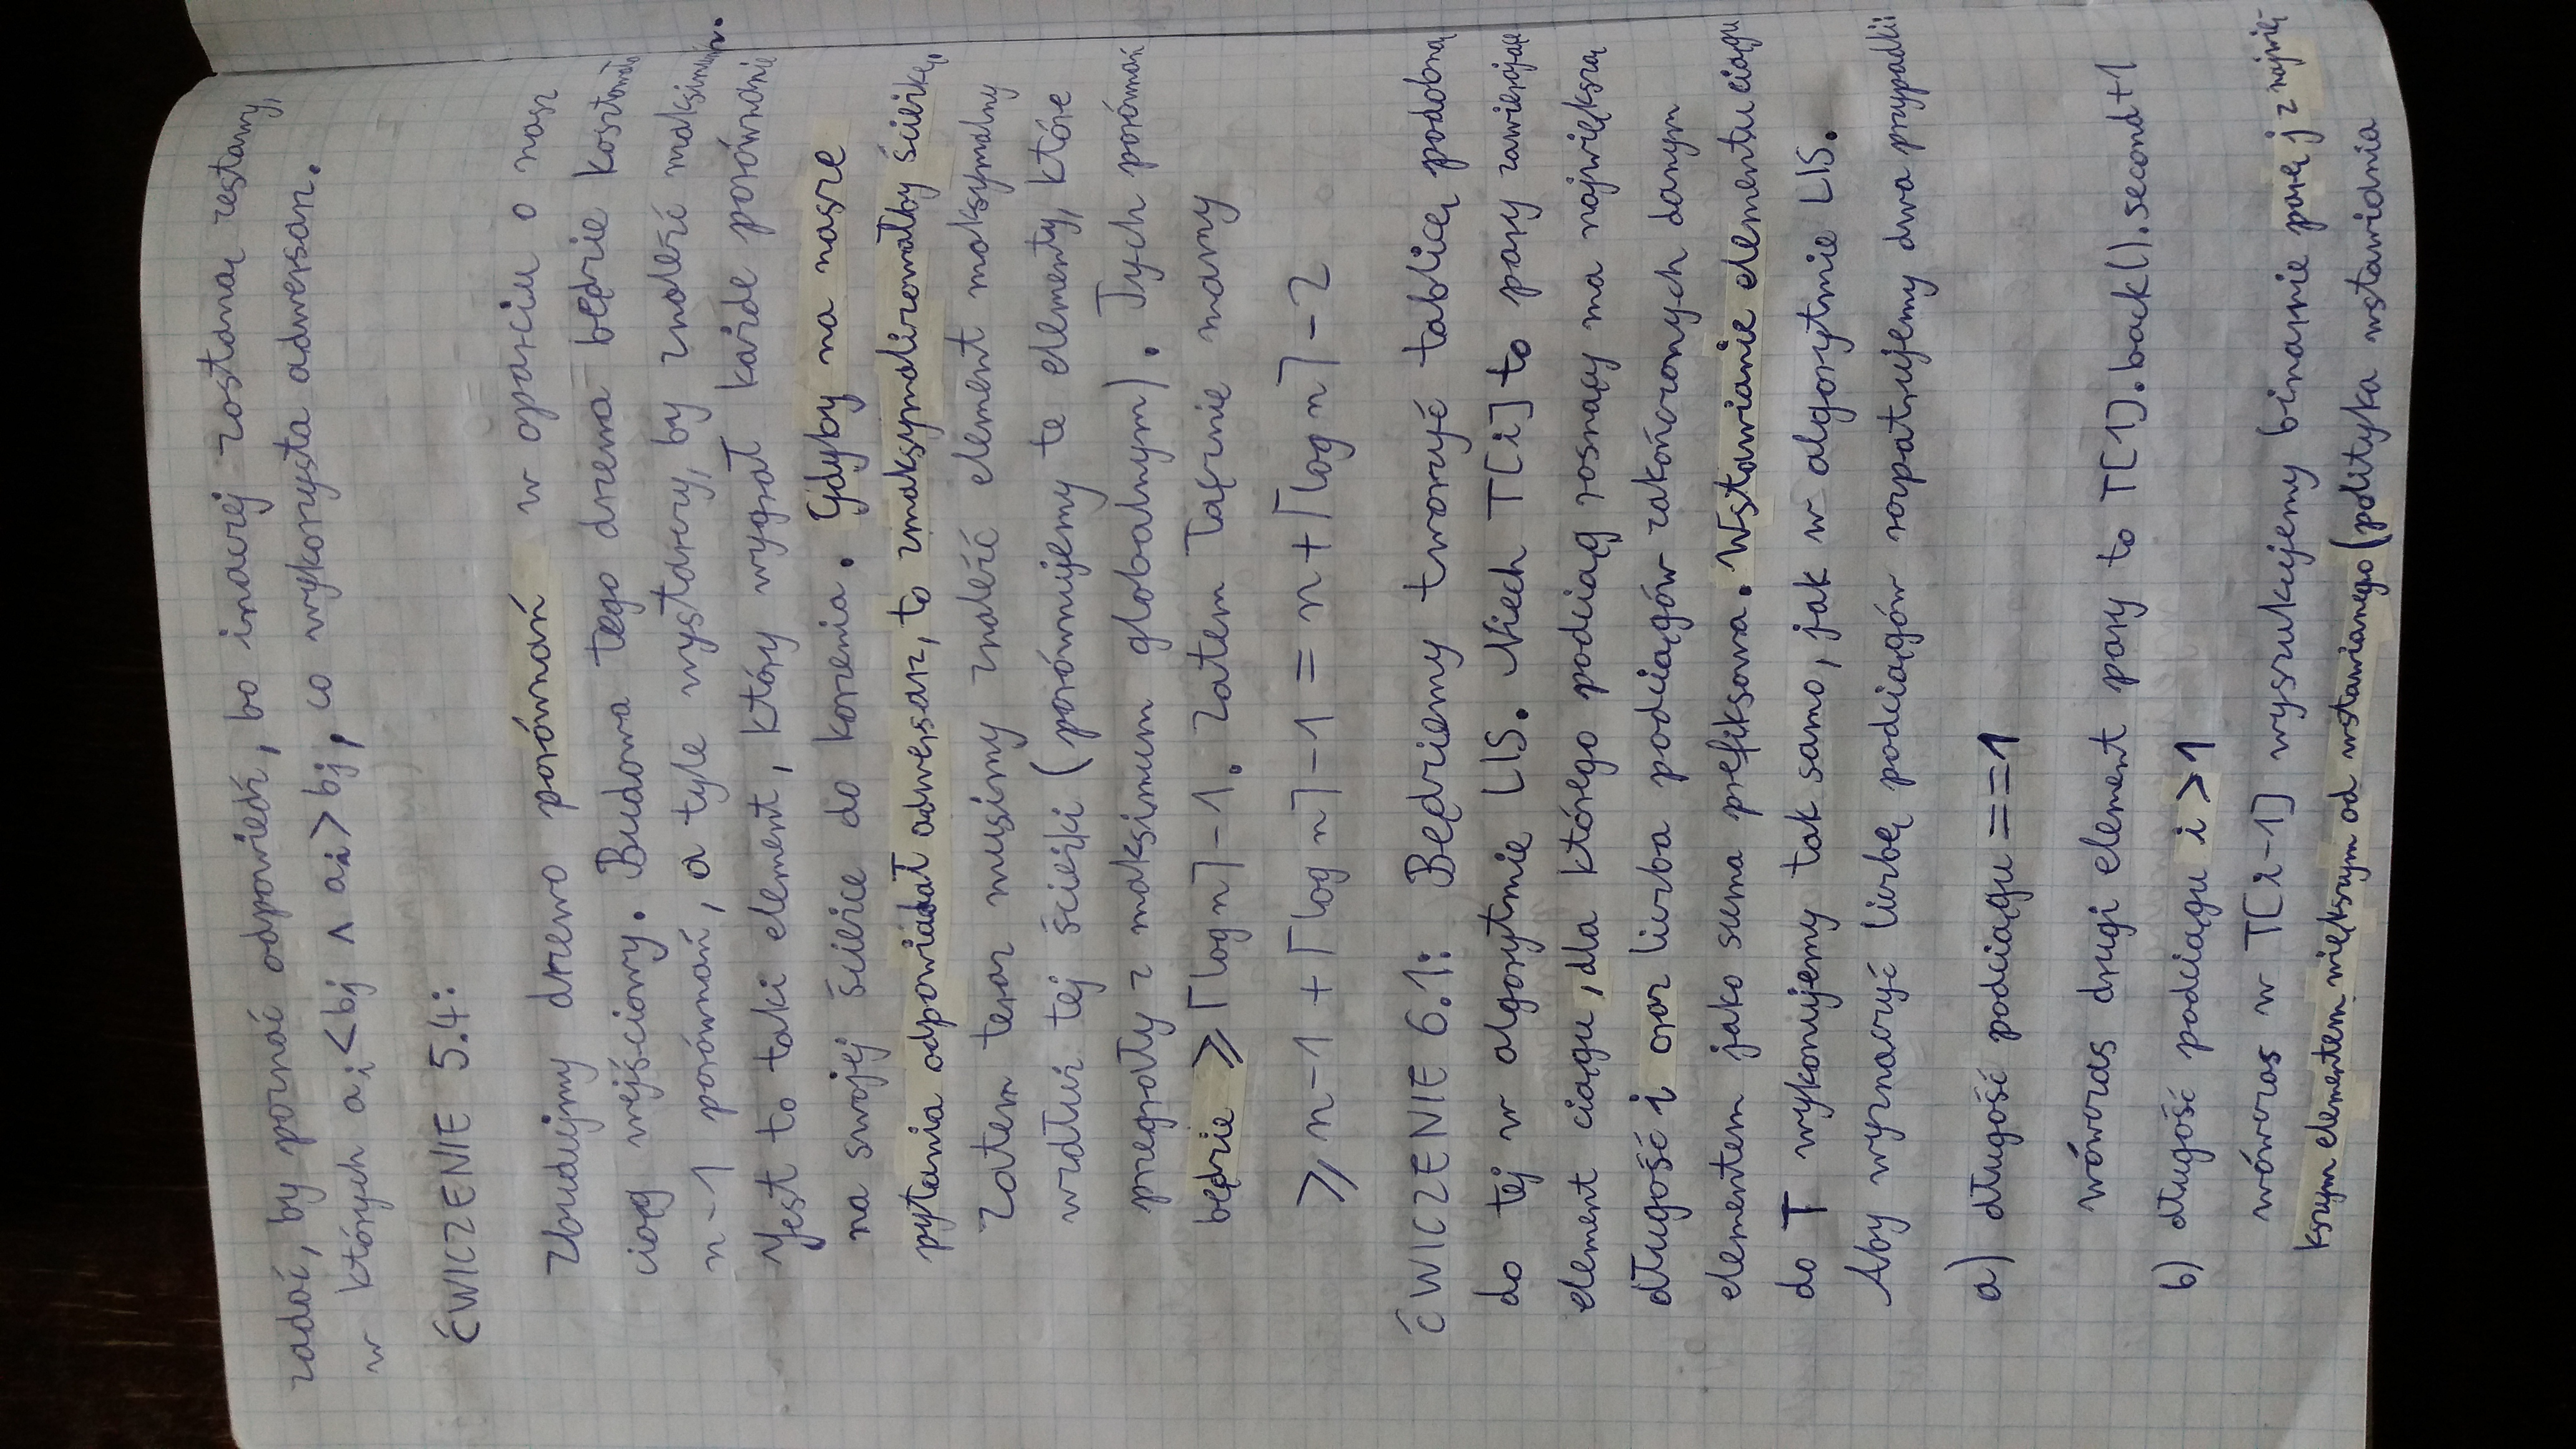 zadać, by poznać odpowiedź, bo inaczej zostaną zestawy,
w których a_i < b_j ∧ a_i > b_j, co wykorzysta adwersarz.
ĆWICZENIE 5.4:
Zbudujmy drzewo porównań w oparciu o nasz
ciąg wejściowy. Budowa tego drzewa będzie kosztowała
n-1 porównań, a tyle wystarczy, by znaleźć maksimum.
Jest to taki element, który wygrał każde porównanie
na swojej ścieżce do korzenia. Gdyby na nasze
pytania odpowiadał adwersarz, to zmaksymalizowałby ścieżkę.
Zatem teraz musimy znaleźć element maksymalny
wzdłuż tej ścieżki (porównujemy te elementy, które
przegrały z maksimum globalnym). Tych porównań
będzie ≥ ⌈log n⌉ - 1. Zatem łącznie mamy
≥ n-1 + ⌈log n⌉ - 1 = n + ⌈log n⌉ - 2
ĆWICZENIE 6.1: Będziemy tworzyć tablicę podobną
do tej w algorytmie LIS. Niech T[i] to pary zawierające
element ciągu, dla którego podciąg rosnący ma największą
długość i oraz liczba podciągów zakończonych danym
elementem jako suma prefiksowa. Wstawianie elementu ciągu
do T wykonujemy tak samo, jak w algorytmie LIS.
Aby wyznaczyć liczbę podciągów rozpatrujemy dwa przypadki:
a) długość podciągu == 1
wówczas drugi element pary to T[1].back().second+1
b) długość podciągu i > 1
wówczas w T[i-1] wyszukujemy binarnie parę j z najwię-
kszym elementem większym od wstawianego (polityka wstawiania